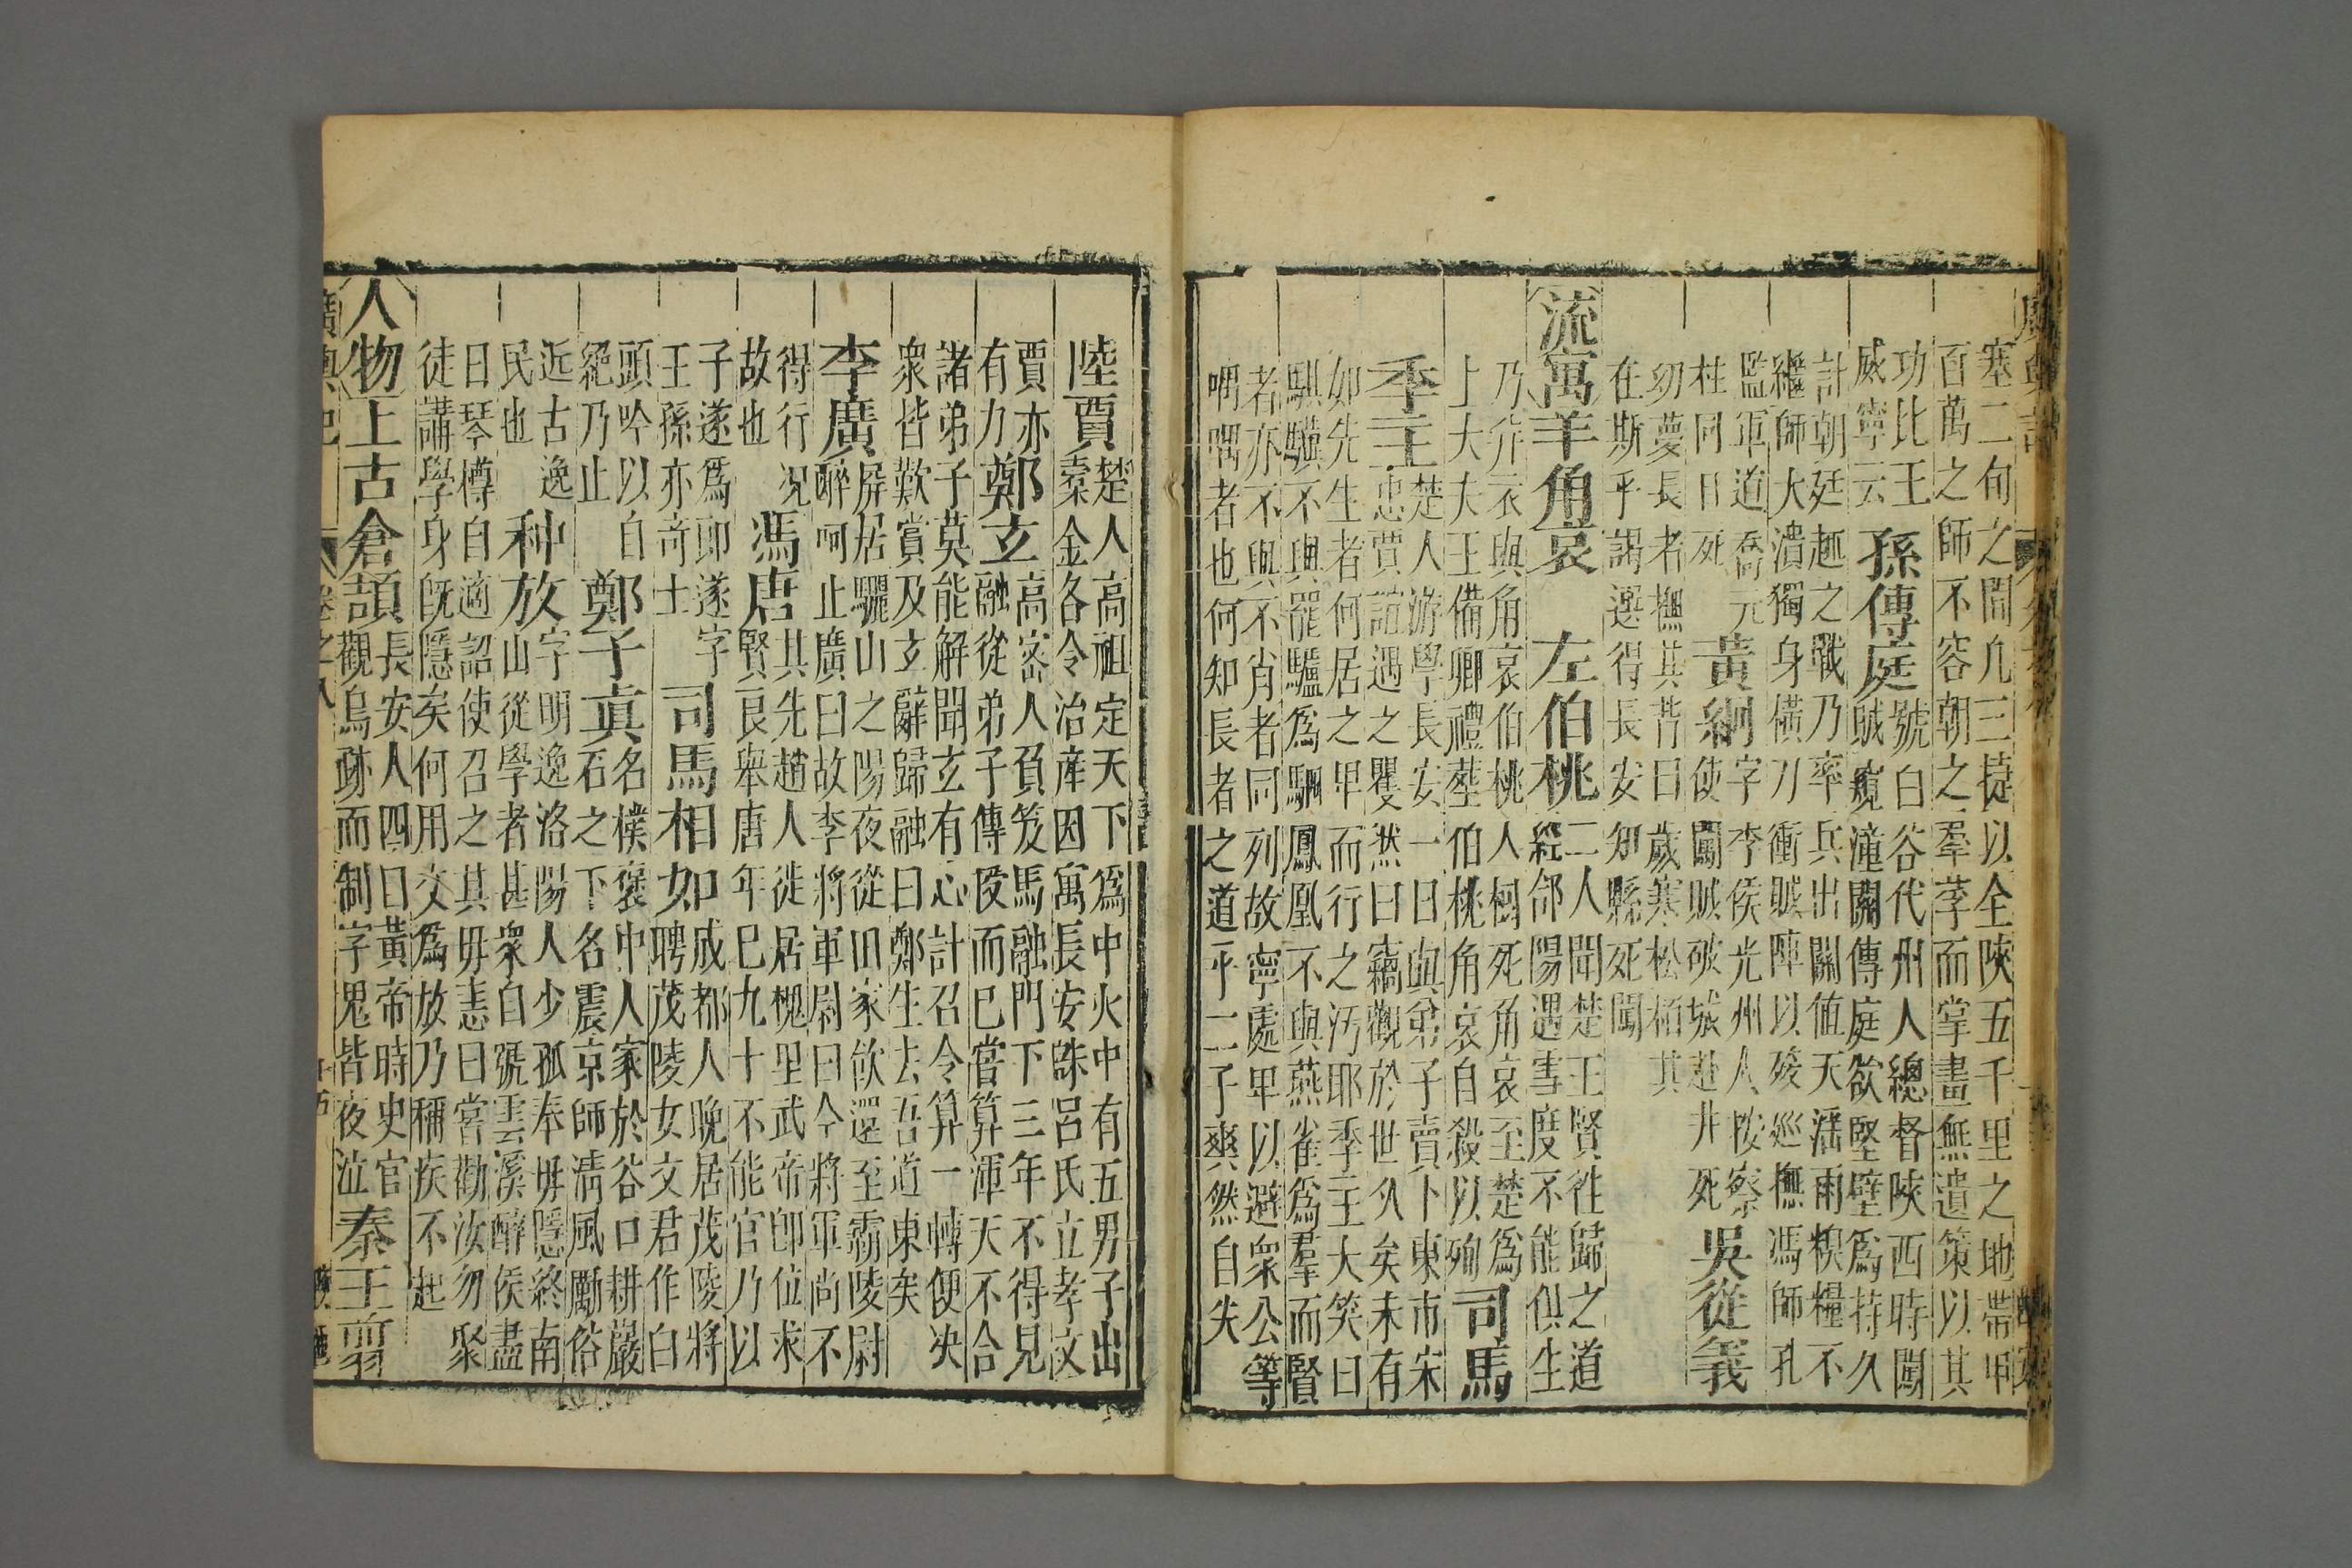 塞二句之間凡三捷以全陝五千里之地帶甲
百萬之師不容朝之羣莩而掌畫無遺策以其
功比王
威寧云
孫傳庭
號白谷代州人總督陝西時闖
賊窺潼關傳庭欲堅壁爲持久
計朝廷趣之戰乃率兵出關值天滛雨糗糧不
繼師大潰獨身橫刀衝賊陣以歿巡撫馮師孔
監軍道喬元
柱同日死
黃絅
字李侯光州人按察
使闖賊破城赴井死
吳從義
幼夢長者撫其背曰歲寒松栢其
在斯乎謁選得長安知縣死闖
流寓羊角哀 左伯桃
二人聞楚王賢徃歸之道
經郃陽遇雪度不能俱生
乃并衣與角哀伯桃入樹死角哀至楚爲
上大夫王備卿禮塟伯桃角哀自殺以殉
司馬
季主
楚人游學長安一日與弟子賣卜東市宋
忠賈誼遇之瞿然曰竊觀於世久矣未有
如先生者何居之卑而行之汚耶季主大笑曰
騏驥不與罷驢爲駟鳳凰不與燕雀爲羣而賢
者亦不與不肖者同列故寧處卑以避衆公等
喁喁者也何知長者之道乎二子爽然自失
陸賈
楚人高祖定天下爲中大中有五男子出
橐金各令治産因寓長安誅呂氏立孝文
賈亦
有力
鄭玄
高宻人負笈馬融門下三年不得見
融從弟子傳授而已嘗算渾天不合
諸弟子莫能解聞玄有心計召令算一轉便决
衆皆歎賞及玄辭歸融曰鄭生去吾道東矣
李廣
屏居驪山之陽夜從田家飲還至霸陵尉
醉呵止廣曰故李將軍尉曰今將軍尚不
得行况
故也
馮唐
其先趙人徙居槐里武帝卽位求
賢良舉唐年已九十不能官乃以
子遂爲郎遂字
王孫亦奇士
司馬相如
成都人晚居茂陵將
聘茂陵女文君作白
頭吟以自
絕乃止
鄭子真
名樸褒中人家於谷口耕巖
石之下名震京師淸風勵俗
近古逸
民也
种放
字明逸洛陽人少孤奉毋隱終南
山從學者甚衆自號雲溪醉侯盡
日琴樽自適詔使召之其毋恚曰嘗勸汝勿聚
徒講學身旣隱矣何用文爲放乃稱疾不起
人物上古倉頡
長安人四目黃帝時史官
觀鳥跡而制字鬼皆夜泣
秦王翦
廣輿記 卷之八 十五 陝西